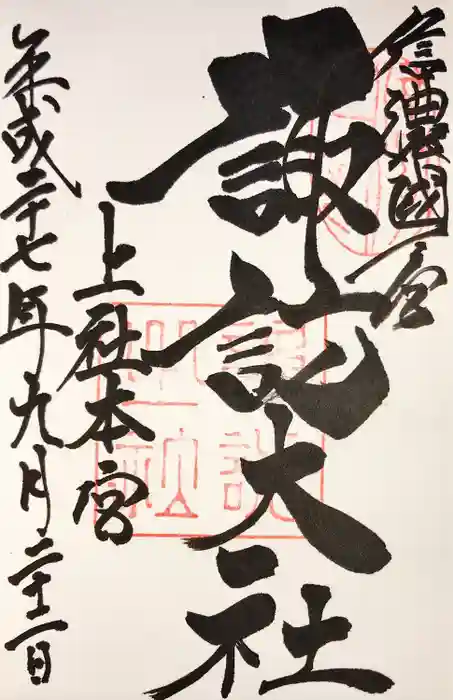 信濃國一宮
諏訪大社
上社本宮
平成二十七年九月二十二日